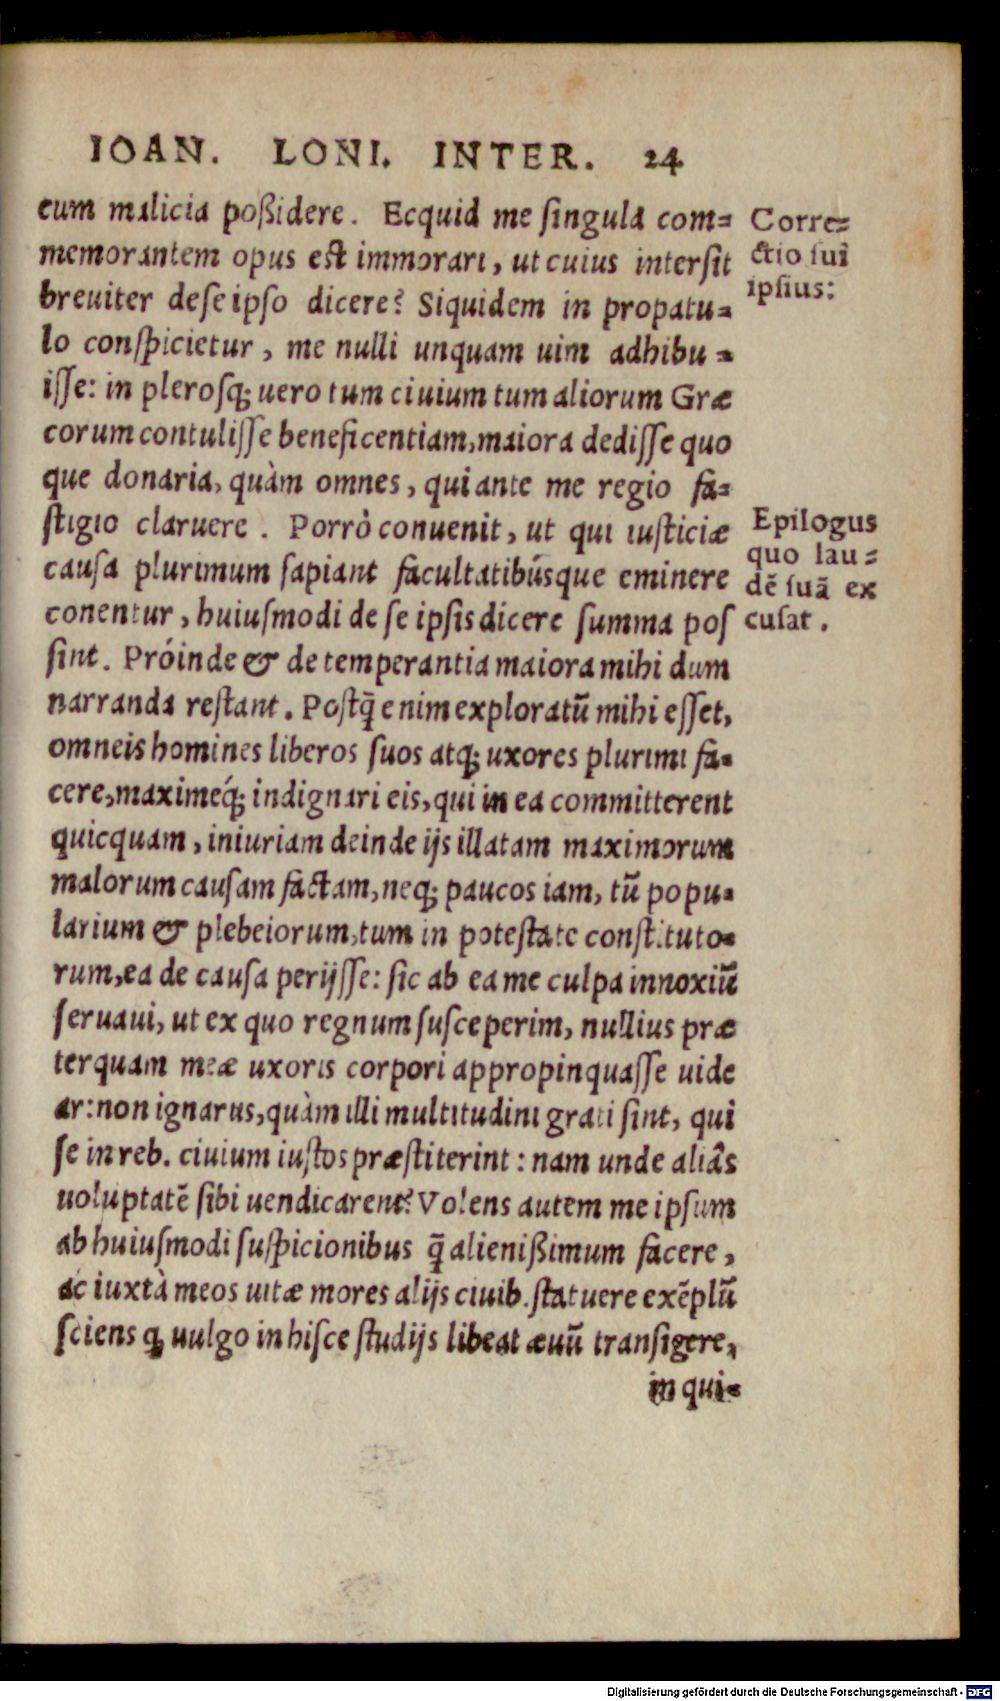 IOAN. LONI. INTER. 24
cum malicia poßidere. Ecquid me ſingula com=
memorantem opus est immorari, ut cuius interſit
breuiter de ſe ipſo dicere? Siquidem in propatu=
lo conſpicietur, me nulli unquam uim adhibu=
iſſe: in pleroſq; uero tum ciuium tum aliorum Græ
corum contuliſſe beneficentiam, maiora dediſſe quo
que donaria, quàm omnes, qui ante me regio fa=
ſtigio claruere. Porrò conuenit, ut qui iuſticiæ
cauſa plurimum ſapiant facultatibúsque eminere
conentur, huiuſmodi de ſe ipſis dicere ſumma poſ
ſint. Próinde & de temperantia maiora mihi dum
narranda reſtant. Poſtq̃ enim exploratũ mihi eſſet,
omneis homines liberos ſuos atq; uxores plurimi fa=
cere, maximeq́; indignari eis, qui in ea committerent
quicquam, iniuriam deinde ijs illatam maximorum
malorum cauſam factam, neq; paucos iam, tũ popu=
larium & plebeiorum, tum in poteſtate conſtituto=
rum, ea de cauſa perijſſe: ſic ab ea me culpa innoxiũ
ſeruaui, ut ex quo regnum ſuſceperim, nullius præ
terquam meæ uxoris corpori appropinquaſſe uide
ar: non ignarus, quàm illi multitudini grati ſint, qui
ſe in reb. ciuium iuſtos præſtiterint: nam unde aliâs
uoluptatẽ ſibi uendicarent? Volens autem me ipſum
ab huiuſmodi ſuſpicionibus q̃ alienißimum facere,
ac iuxtà meos uitæ mores alijs ciuib. ſtatuere exẽplũ
ſciens ꝙ uulgo in hiſce ſtudijs libeat æuũ tranſigere,
in qui=
Corre=
ctio ſui
ipſius:
Epilogus
quo lau=
dẽ ſuã ex
cuſat.
Digitalisierung gefördert durch die Deutsche Forschungsgemeinschaft - DFG